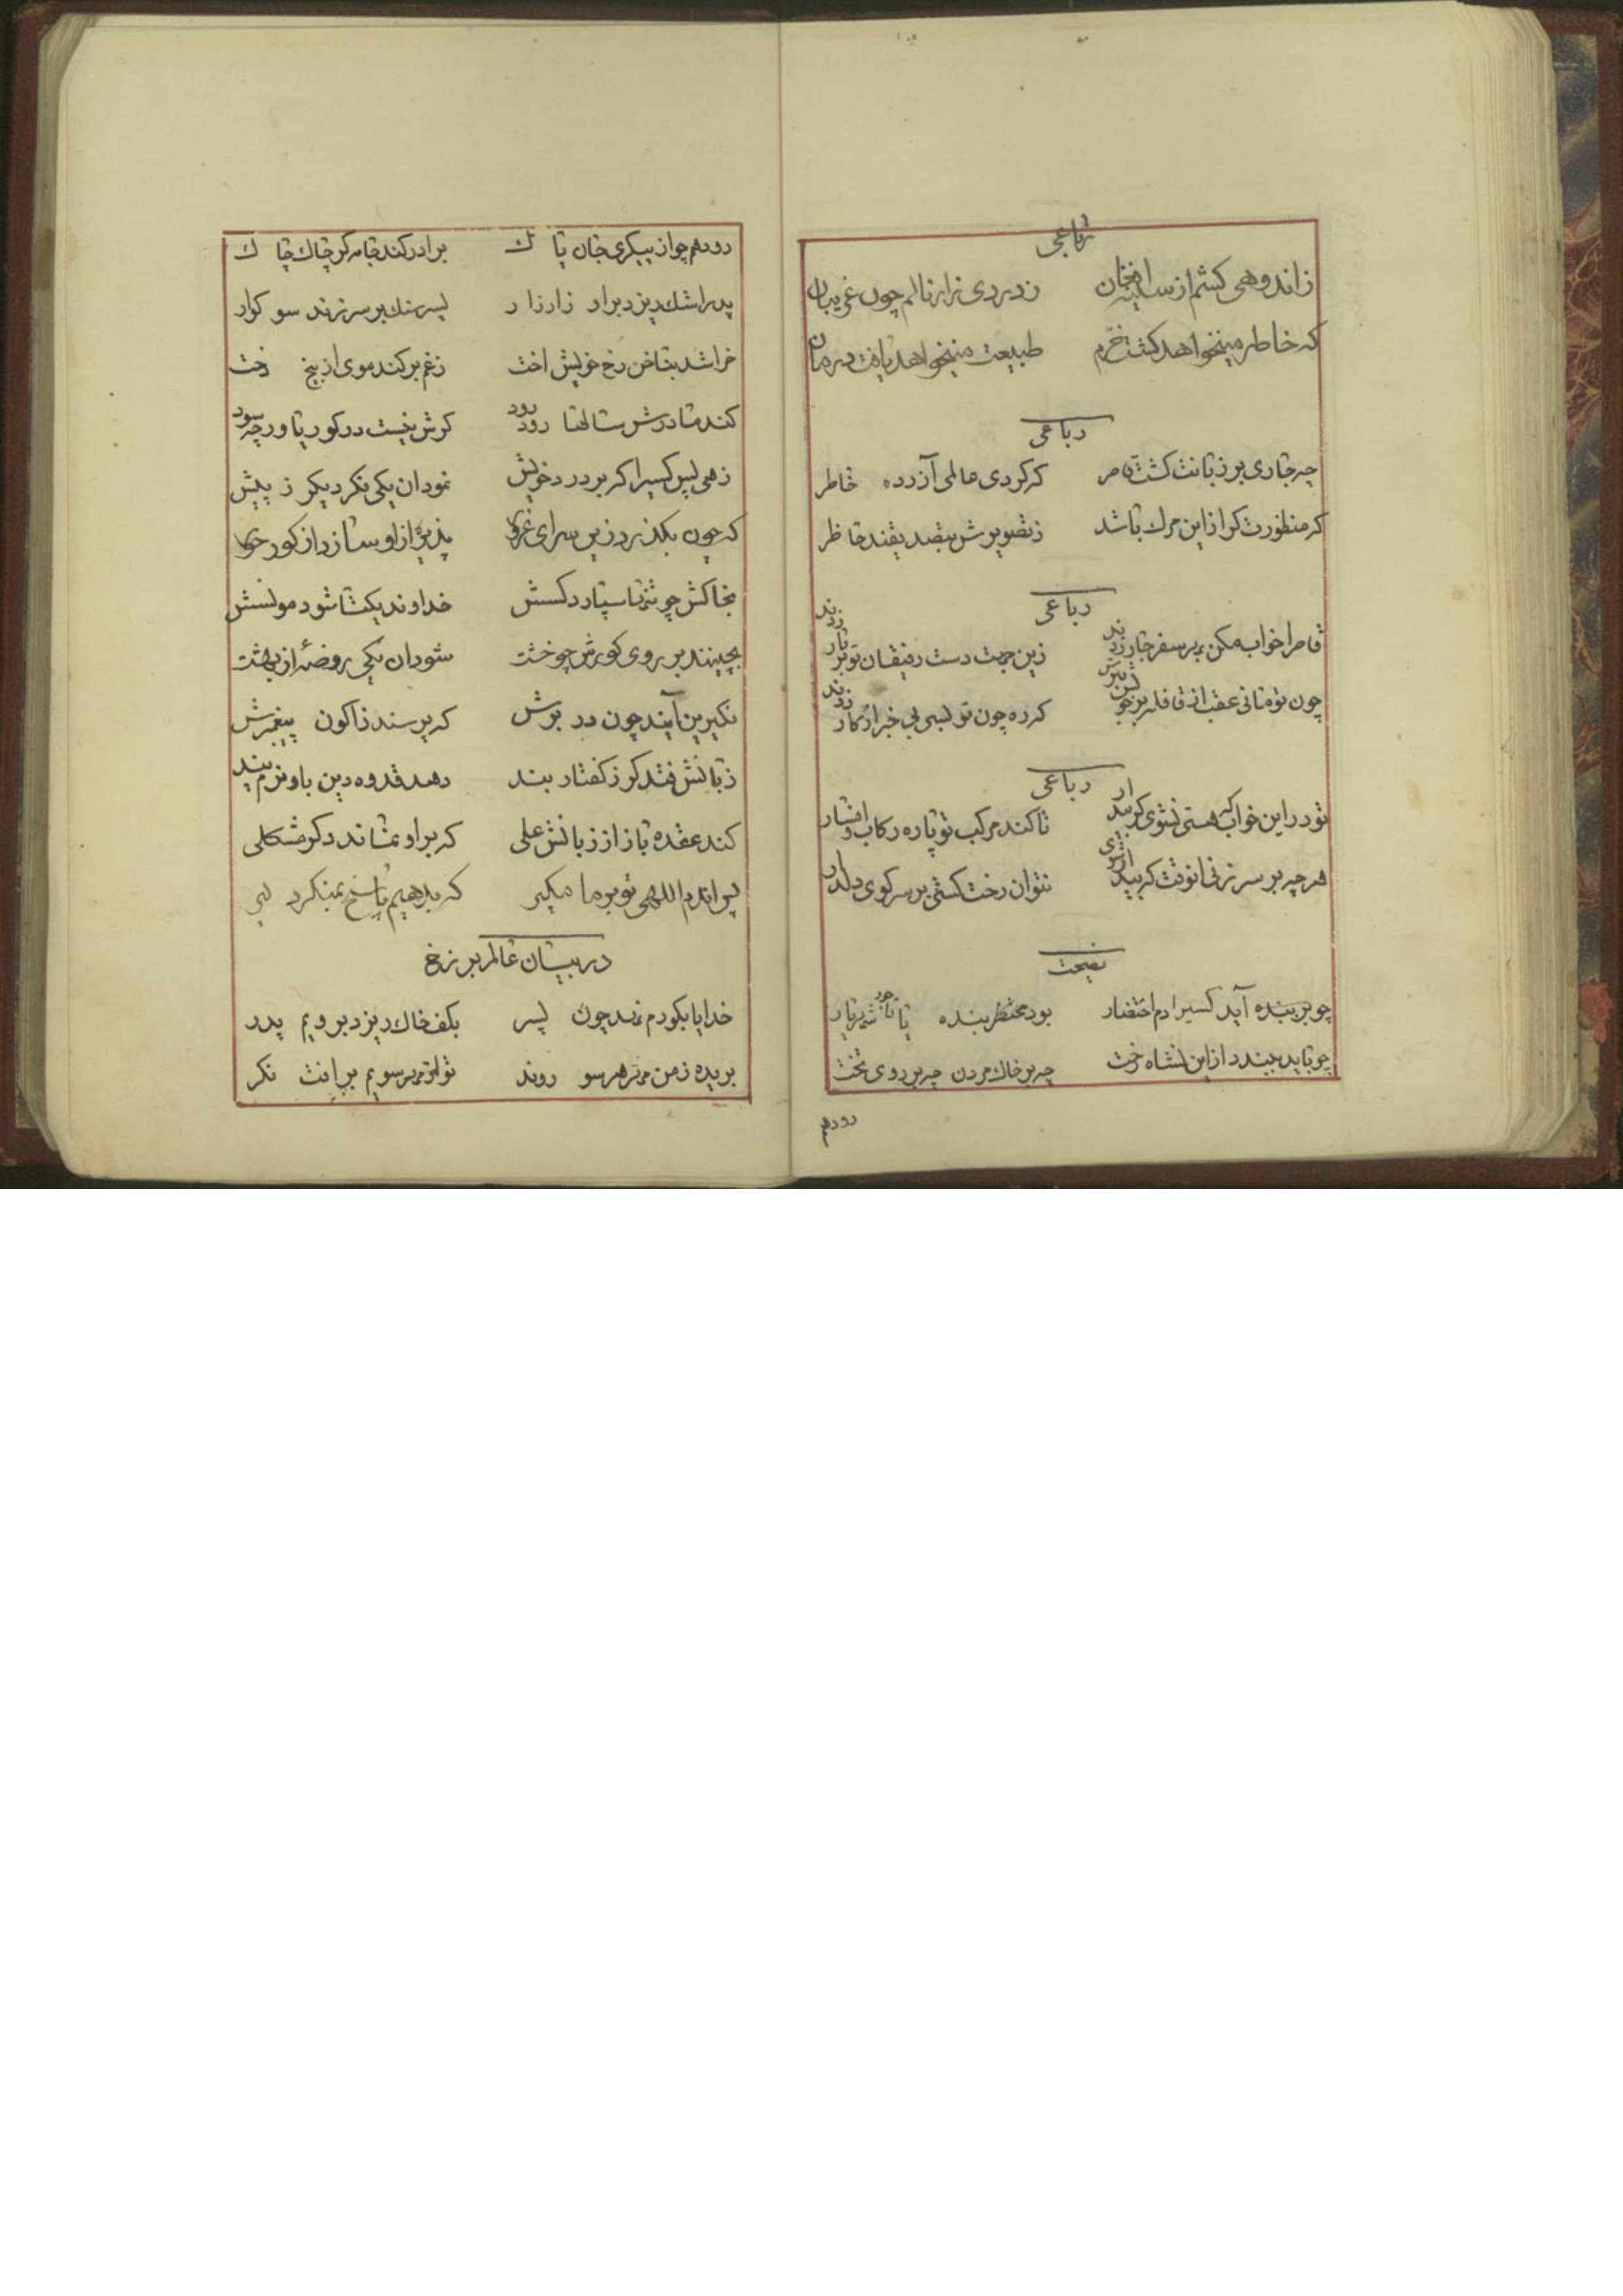 رباعی
زاندوهی کشم از سینه افغان زدردی زار نالم چون غریبان
که خاطر مینخواهد گشت خرم طبیعت مینخواهد یافت درمان
رباعی
چه جاری بر زبانت گشت قاصر که کردی عالمی آزرده خاطر
که منظورت کر از این مرک باشد ز تصویرش بتصدیقند حاظر
رباعی
قاصرا خواب مکن بهر سفر جار زدند زین جهت دست رفیقان تو بر بار زدند
چون تو مانی عقب از قافله برخویش کرده چون تو بسی بی خبر از کار زدند
رباعی
تو در این خواب که هستی نشوی کر بیدار تا کند مرکب تو پاره رکاب و افسار
هرچه بر سر زنی انوقت که بیدار شوی نتوان رخت کشی بر سر کوی دلدار
نصیحت
چو بر بنده آید کسیرا دم احتضار بود محتظر بنده یا تاجور شهریار
چو باید ببندد از این نشاه رخت چه بر خاک مردن چه بر روی تخت
رودهم
رودهم چو از پیکری جان پاک برادر کند جامه کر چاک چاک
پدر اشک ریزد بر او زار زار پسر سنک بر سر زند سوکوار
خراشد بناخن رخ خویش اخت زغم بر کند موی از بیخ دخت
کند مادرش سالها رود رود کرش نیست در کور یاور چه سود
زهی پس کسیرا که بر درد خویش نمود ان یکی فکر دیکر ز پیش
که چون بکذرد زین سرای غرور پذیرا از او سازد از کور حور
بخاکش چو تنها سپارد کسش خداوند یکتا شود مونسش
بچینند بر روی کورش چو خشت شود ان یکی روضهٔ از بهشت
نکیرین آیند چون در برش که پرسند زاکون پیغمبرش
زبانش فتد کر ز کفتار بند دهد قدوه دین باو نرم پند
کند عقده باز از زبانش علی که بر او نماند دکر مشکلی
پس اندم اللهی تو بر ما مکیر که بدهیم پاسخ بمنکر نکیر
در بیان عالم برزخ
خدایا بکورم نهد چون پسر بکف خاک ریزد برویم پدر
بریده ز من هر سو روند تو از مهر سویم برانت نکر